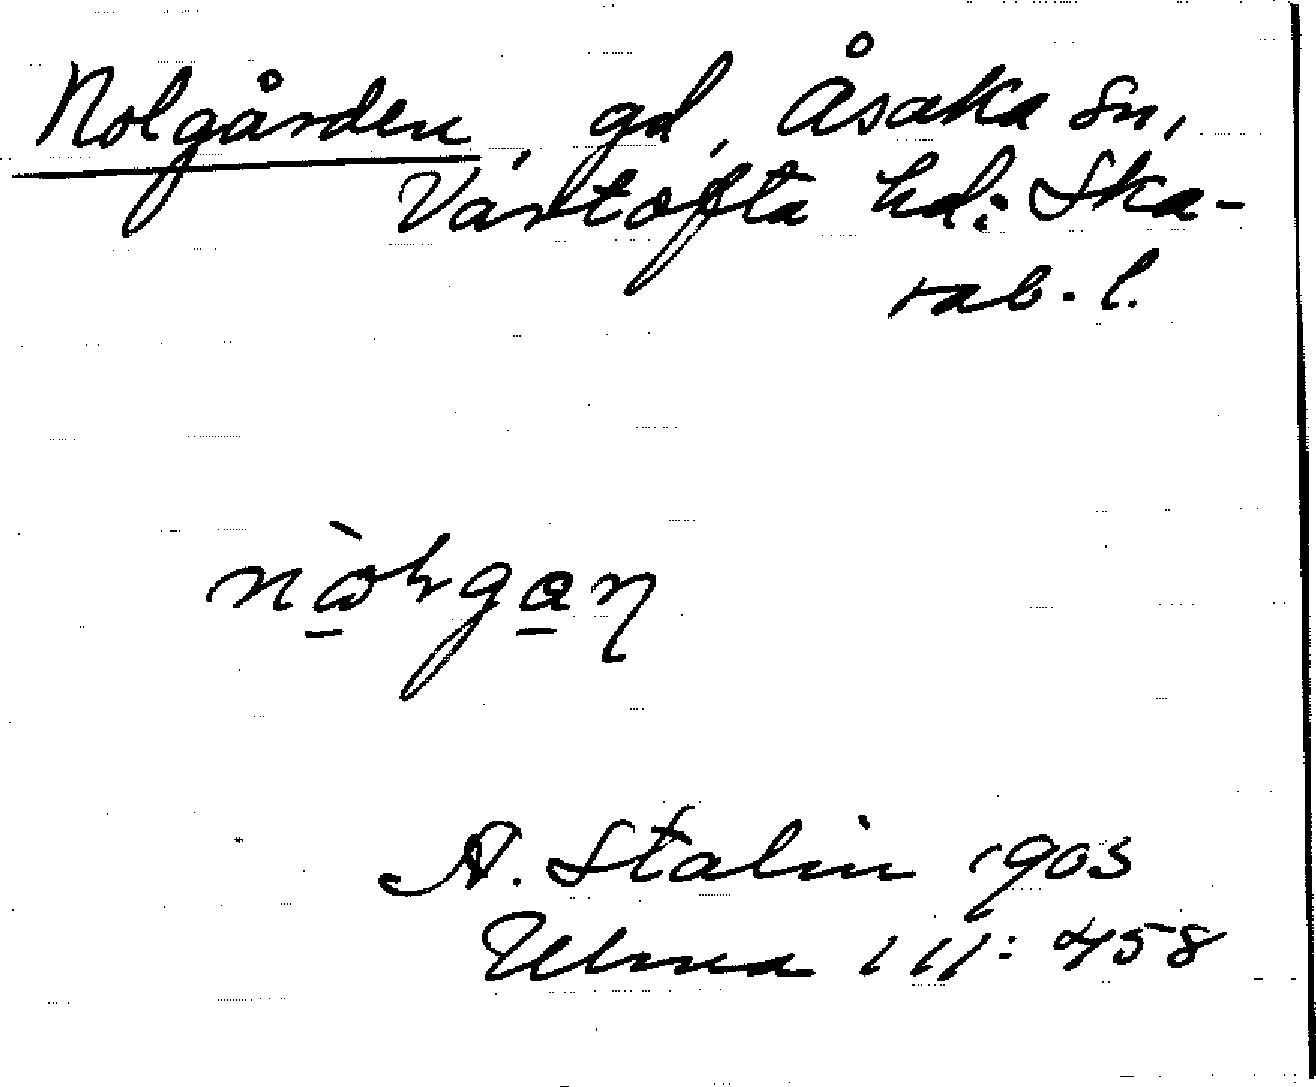 Nolgården, gd, Åsaka sn,
Vartofta hd: Ska-
rab. l.
A. Stalin 1903
Ulma 111: 458